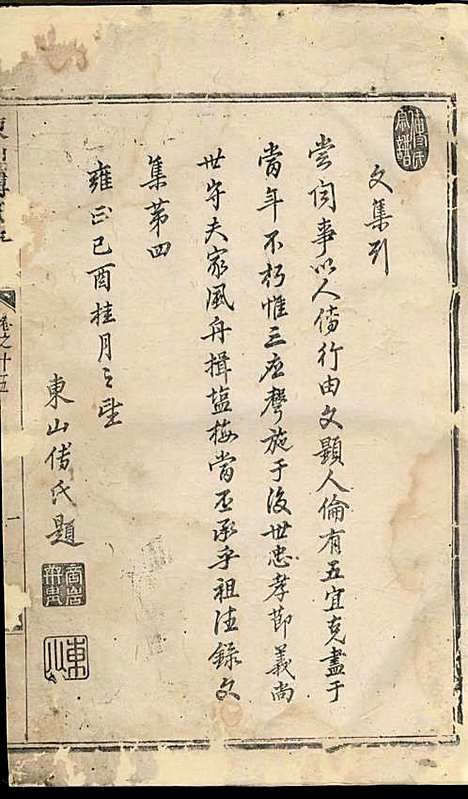 文集引
嘗聞事以人傳行由文顯人倫有五宜克盡于
當年不朽惟三应聲施于後世忠孝節義尚
世守夫家風舟揖塩梅當丕承乎祖法錄文
集第四
雍正己酉桂月之望
東山傅氏題
東山
卷之十五
一